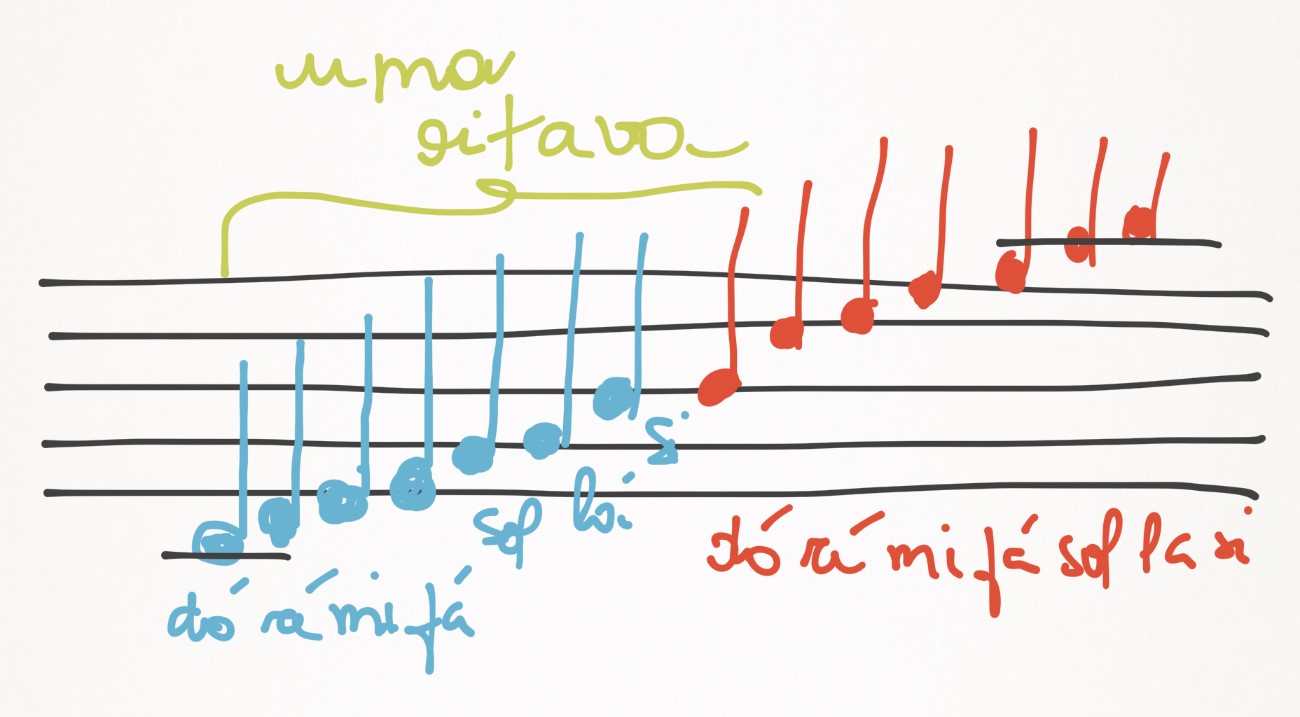 uma
oitava
sol lá si
dó ré mi fá
dó ré mi fá sol la si